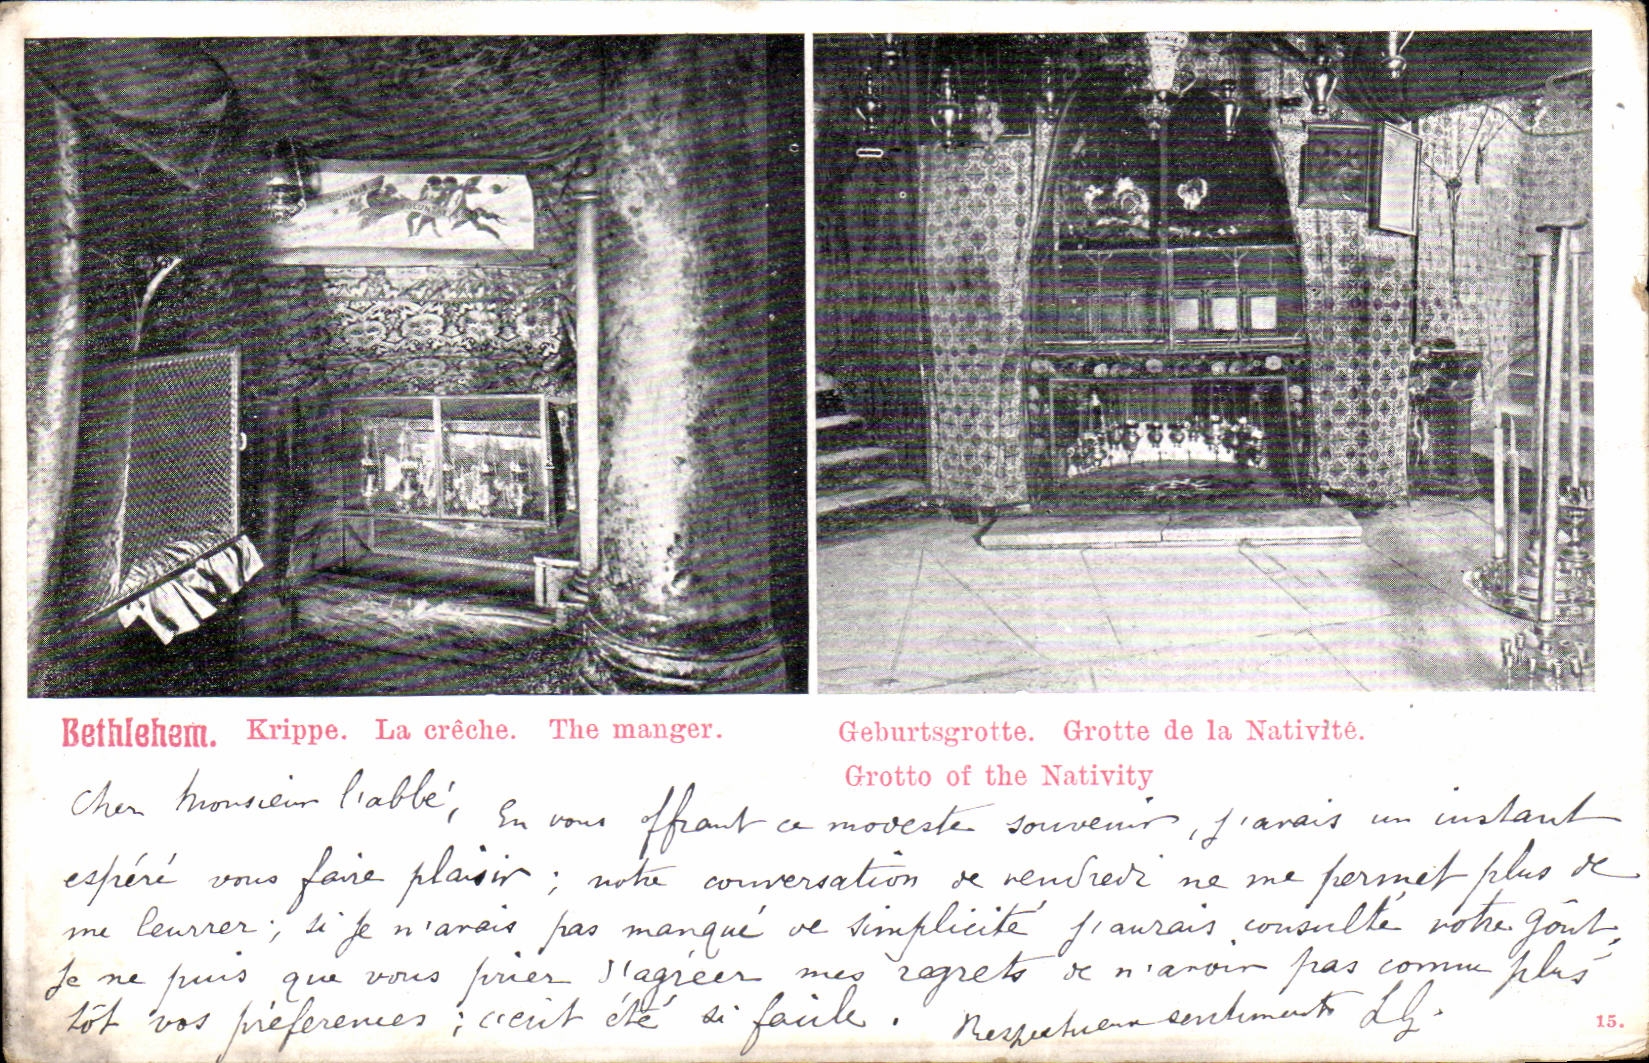 Bethlehem. Krippe. La crêche. The manger.
Geburtsgrotte. Grotte de la Nativité.
Grotto of the Nativity
Cher Monsieur l'abbé,
En vous offrant ce modeste souvenir, j'avais un instant
espéré vous faire plaisir ; notre conversation de vendredi ne me permet plus de
me leurrer ; si je n'avais pas manqué de simplicité j'aurais consulté votre goût,
Je ne puis que vous prier d'agréer mes regrets de n'avoir pas connu plus
tôt vos préférences ; c'eut été si facile.
Respectueux sentiments LG.
15.